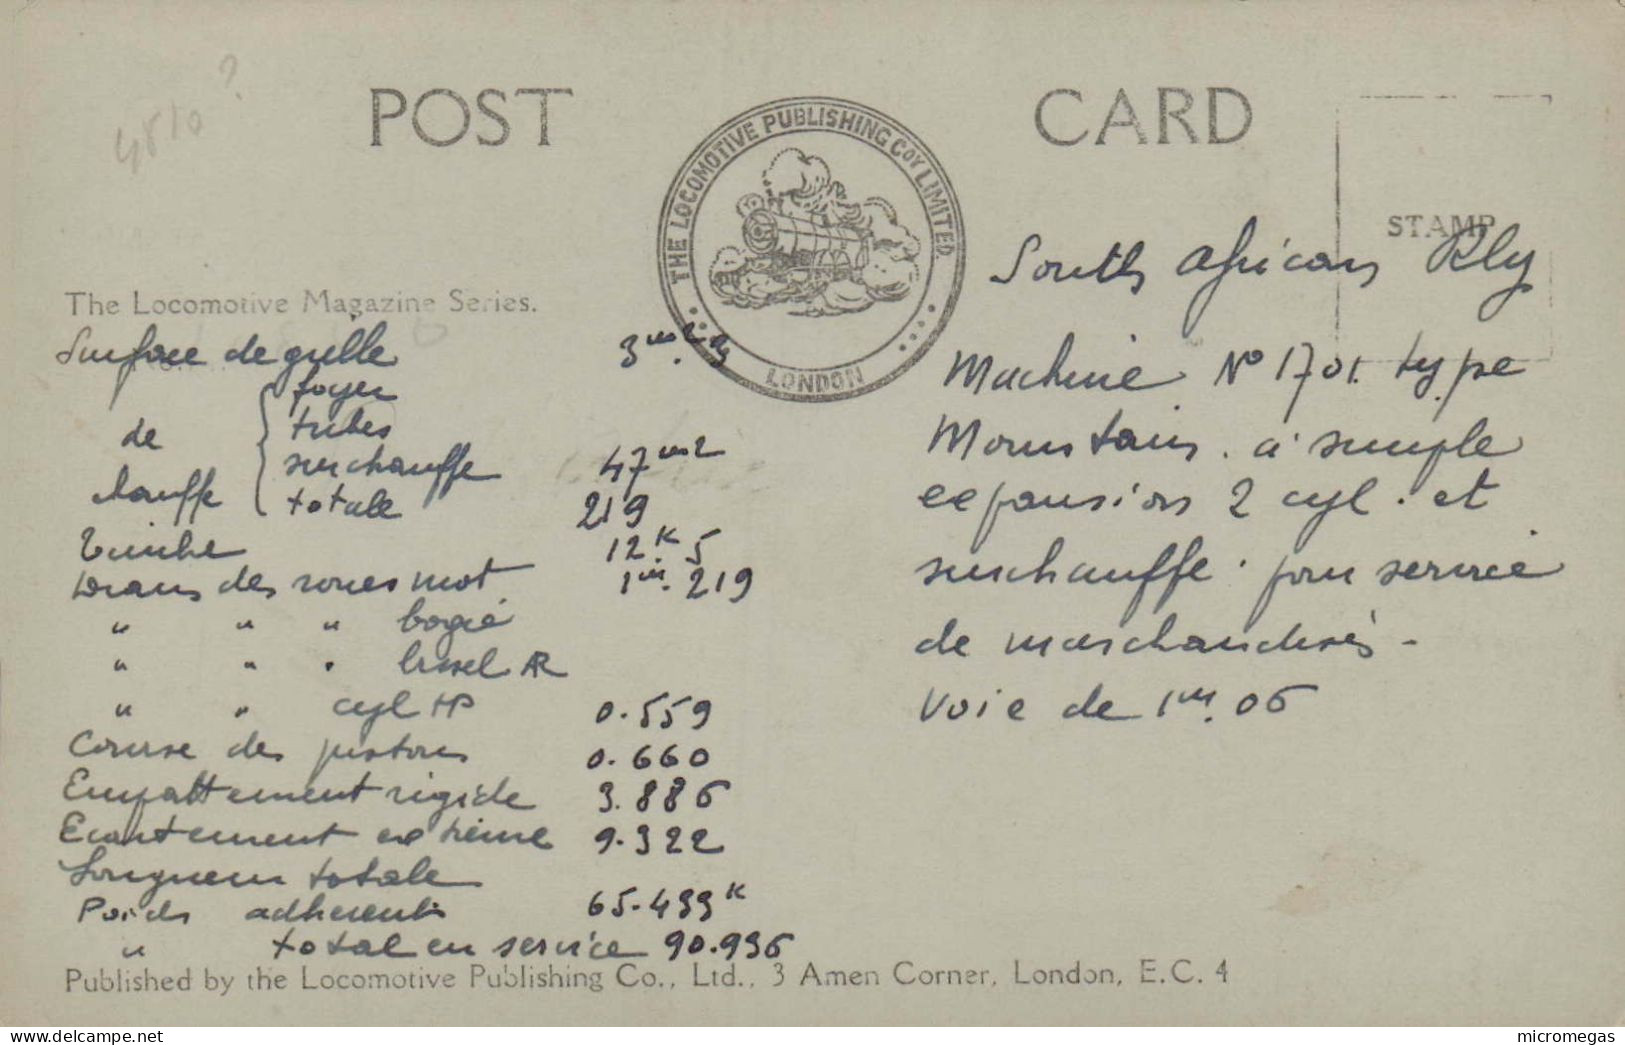 4810 ?
POST CARD
THE LOCOMOTIVE PUBLISHING COY LIMITED.
LONDON
STAMP
The Locomotive Magazine Series.
Surface de grille 3m2.
de chauffe { foyer
tubes
surchauffe 47m2
totale 219
Timbre 12K.5
Diam des roues mot. 1m.219
" " " bogie
" " " bissel AR
" " cyl HP 0.559
Course des pistons 0.660
Empattement rigide 3.886
Ecartement extrême 9.322
Longueur totale
Poids adherent 65.499K
" total en service 90.996
South African Rly
Machine No 1701. type
Mountain. à simple
expansion 2 cyl. et
surchauffe. pour service
de marchandises -
Voie de 1m.06
Published by the Locomotive Publishing Co., Ltd., 3 Amen Corner, London, E.C. 4
micromegas